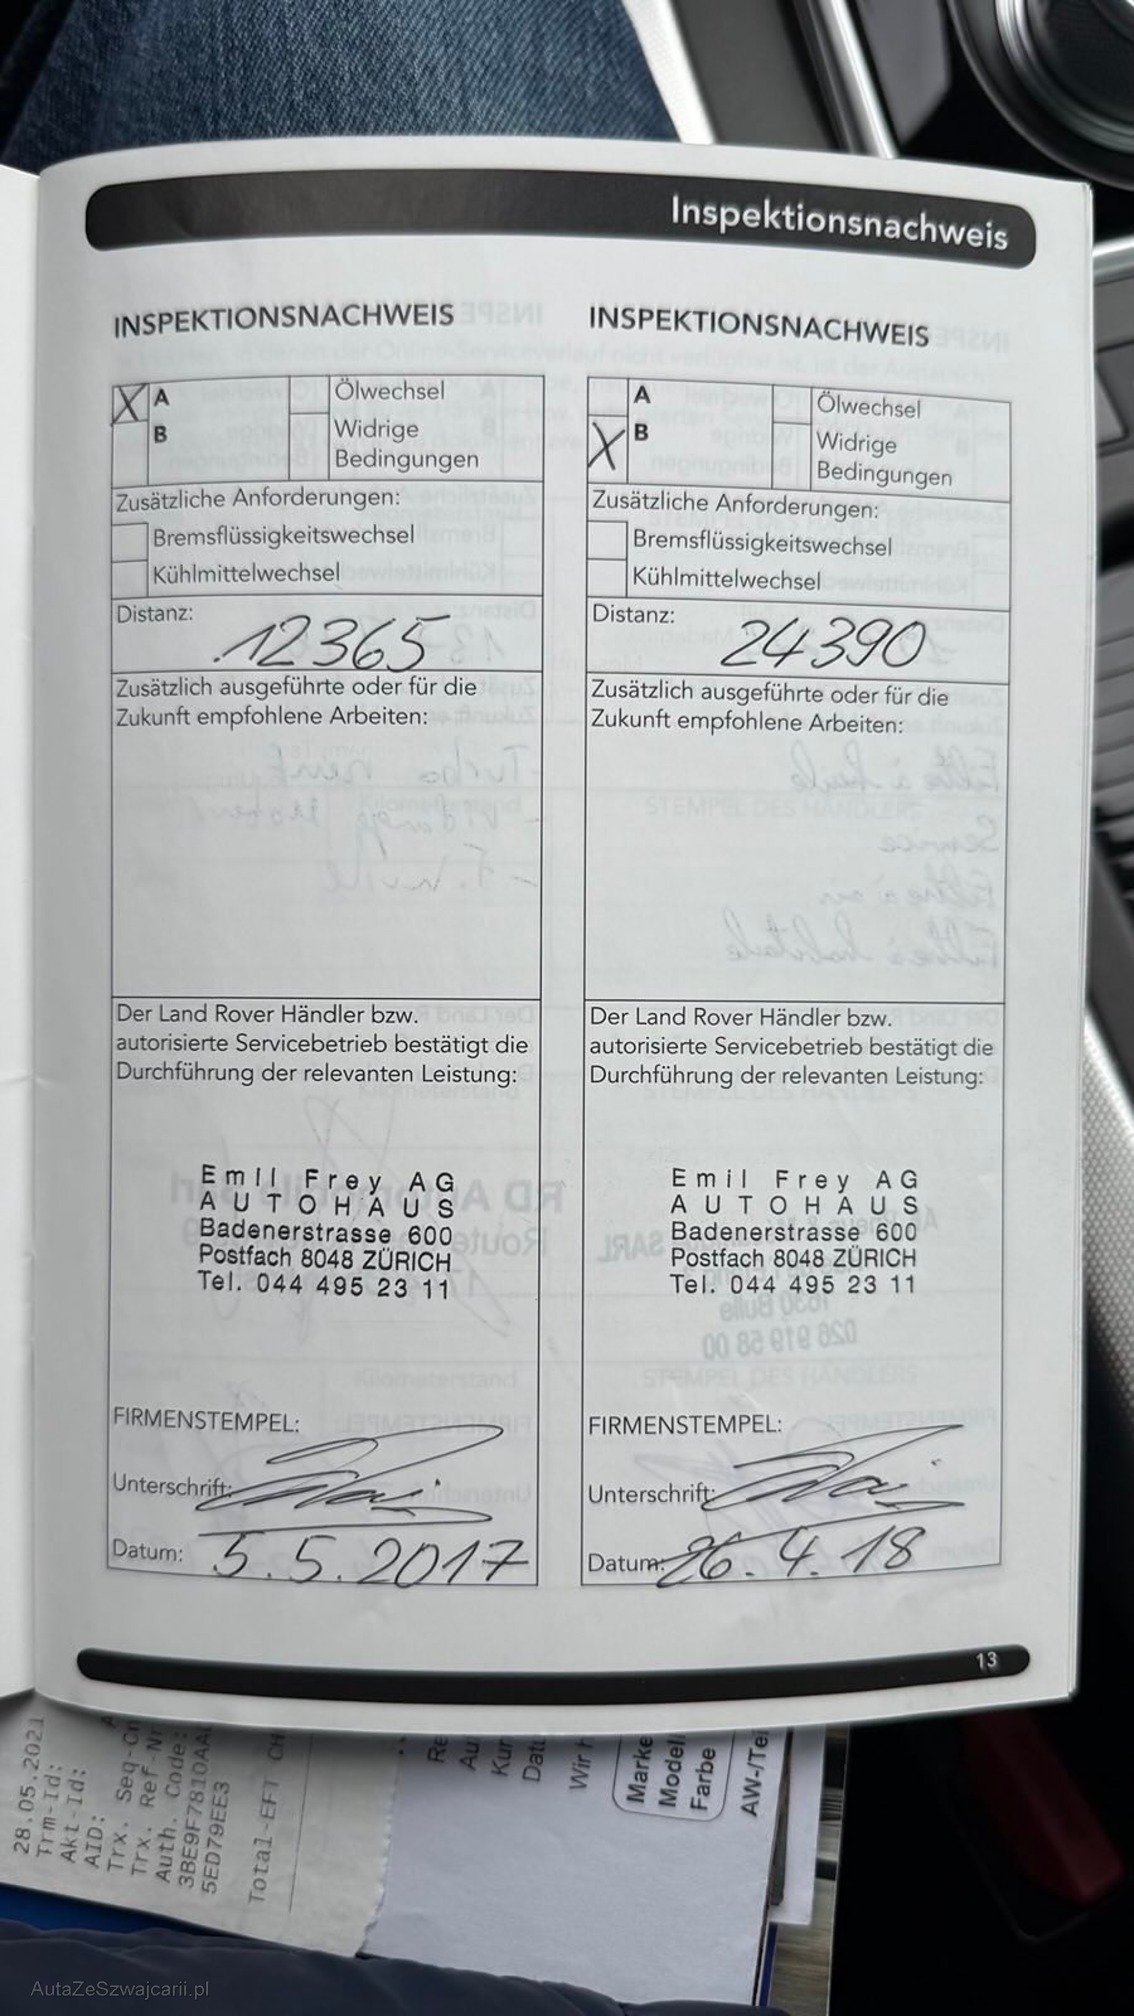 Inspektionsnachweis
INSPEKTIONSNACHWEIS
X A
B
Ölwechsel
Widrige
Bedingungen
Zusätzliche Anforderungen:
Bremsflüssigkeitswechsel
Kühlmittelwechsel
Distanz:
12365
Zusätzlich ausgeführte oder für die
Zukunft empfohlene Arbeiten:
Der Land Rover Händler bzw.
autorisierte Servicebetrieb bestätigt die
Durchführung der relevanten Leistung:
Emil Frey AG
AUTOHAUS
Badenerstrasse 600
Postfach 8048 ZÜRICH
Tel. 044 495 23 11
FIRMENSTEMPEL:
Unterschrift:
Datum: 5.5.2017
INSPEKTIONSNACHWEIS
A
X B
Ölwechsel
Widrige
Bedingungen
Zusätzliche Anforderungen:
Bremsflüssigkeitswechsel
Kühlmittelwechsel
Distanz:
24390
Zusätzlich ausgeführte oder für die
Zukunft empfohlene Arbeiten:
Der Land Rover Händler bzw.
autorisierte Servicebetrieb bestätigt die
Durchführung der relevanten Leistung:
Emil Frey AG
AUTOHAUS
Badenerstrasse 600
Postfach 8048 ZÜRICH
Tel. 044 495 23 11
FIRMENSTEMPEL:
Unterschrift:
Datum: 26.4.18
13
28.05.2021
Trm-Id:
Akt-Id:
AID:
Trx. Seq-Cn
Trx. Ref-Nr
Auth. Code:
3BE9F7810AA
5ED79EE3
Total-EFT CH
Re
Au
Kun
Dat
Wir h
Marke
Modell
Farbe
AW-/Tei
AutaZeSzwajcarii.pl